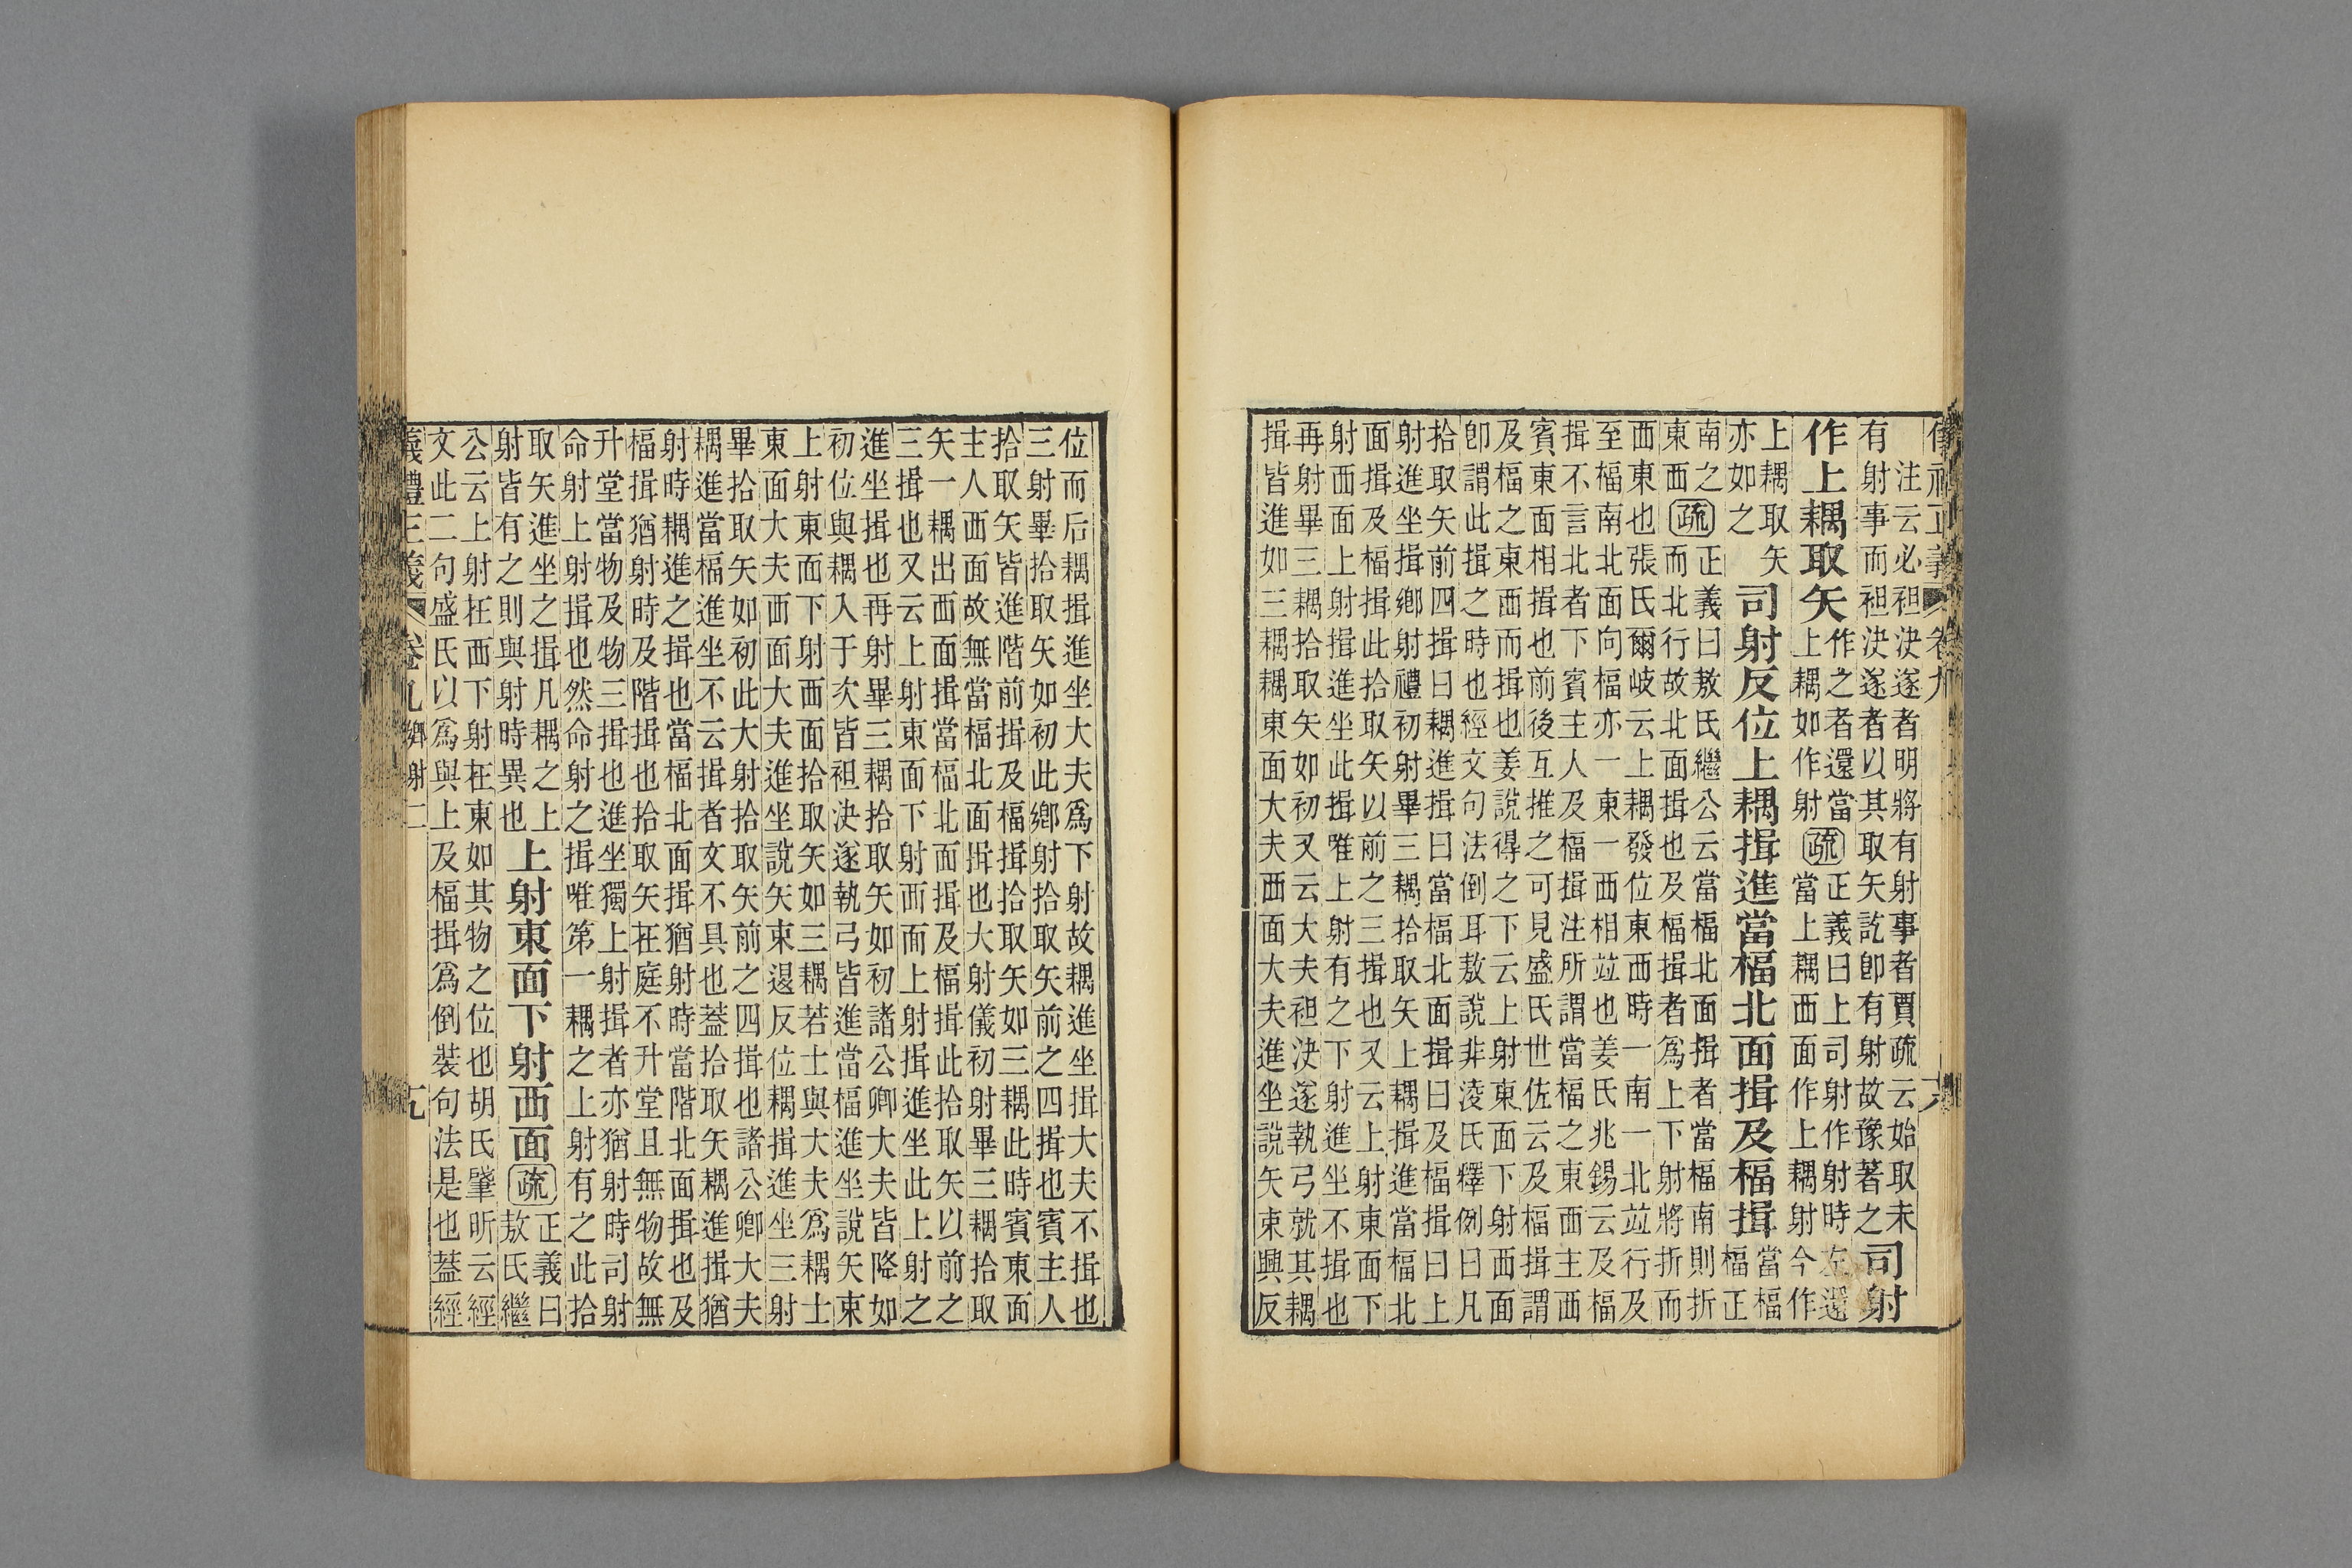 注云必袒決遂者明將有射事者賈疏云始取未
有射事而袒決遂者以其取矢訖卽有射故豫著之
司射
作上耦取矢
作之者還當
上耦如作射
疏
正義曰上司射作射時左還
當上耦西面作上耦射今作
上耦取矢
亦如之
司射反位上耦揖進當楅北面揖及楅揖
當楅
楅正
南之
東西
疏
正義曰敖氏繼公云當楅北面揖者當楅南則折
而北行故北面揖也及楅揖者爲上下射將折而
西東也張氏爾岐云上耦發位東西時一南一北竝行及
至楅南北面向楅亦一東一西相竝也姜氏兆錫云及楅
揖不言北者下賓主人及楅揖注所謂當楅之東西主西
賓東面相揖也前後互推之可見盛氏世佐云及楅揖謂
及楅之東西而揖也姜說得之下云上射東面下射西面
卽謂此揖之時也經文句法倒耳敖說非淩氏釋例曰凡
拾取矢前四揖曰耦進揖曰當楅北面揖曰及楅揖曰上
射進坐揖鄉射禮初射畢三耦拾取矢上耦揖進當楅北
面揖及楅揖此拾取矢以前之三揖也又云上射東面下
射西面上射揖進坐此揖唯上射有之下射進坐不揖也
再射畢三耦拾取矢如初又云大夫袒決遂執弓就其耦
揖皆進如三耦耦東面大夫西面大夫進坐說矢束興反
位而后耦揖進坐大夫爲下射故耦進坐揖大夫不揖也
三射畢拾取矢如初此鄉射拾取矢前之四揖也賓主人
拾取矢皆進階前揖及楅揖拾取矢如三耦此時賓東面
主人西面故無當楅北面揖也大射儀初射畢三耦拾取
矢一耦出西面揖當楅北面揖及楅揖此拾取矢以前之
三揖也又云上射東面下射西面上射揖進坐此上射之
進坐揖也再射畢三耦拾取矢如初諸公卿大夫皆降如
初位與耦入于次皆袒決遂執弓皆進當楅進坐說矢束
上射東面下射西面拾取矢如三耦若士與大夫爲耦士
東面大夫西面大夫進坐說矢束退反位耦揖進坐三射
畢拾取矢如初此大射拾取矢前之四揖也諸公卿大夫
耦進當楅進坐不云揖者文不具也蓋拾取矢耦進揖猶
射時耦進之揖也當楅北面揖猶射時當階北面揖也及
楅揖猶射時及階揖也拾取矢在庭不升堂且無物故無
升堂當物及物三揖也進坐獨上射揖者亦猶射時司射
命射上射揖也然命射之揖唯第一耦之上射有之此拾
取矢進坐之揖凡耦之上
射皆有之則與射時異也
上射東面下射西面
疏
正義曰
敖氏繼
公云上射在西下射在東如其物之位也胡氏肇昕云經
文此二句盛氏以爲與上及楅揖爲倒裝句法是也蓋經